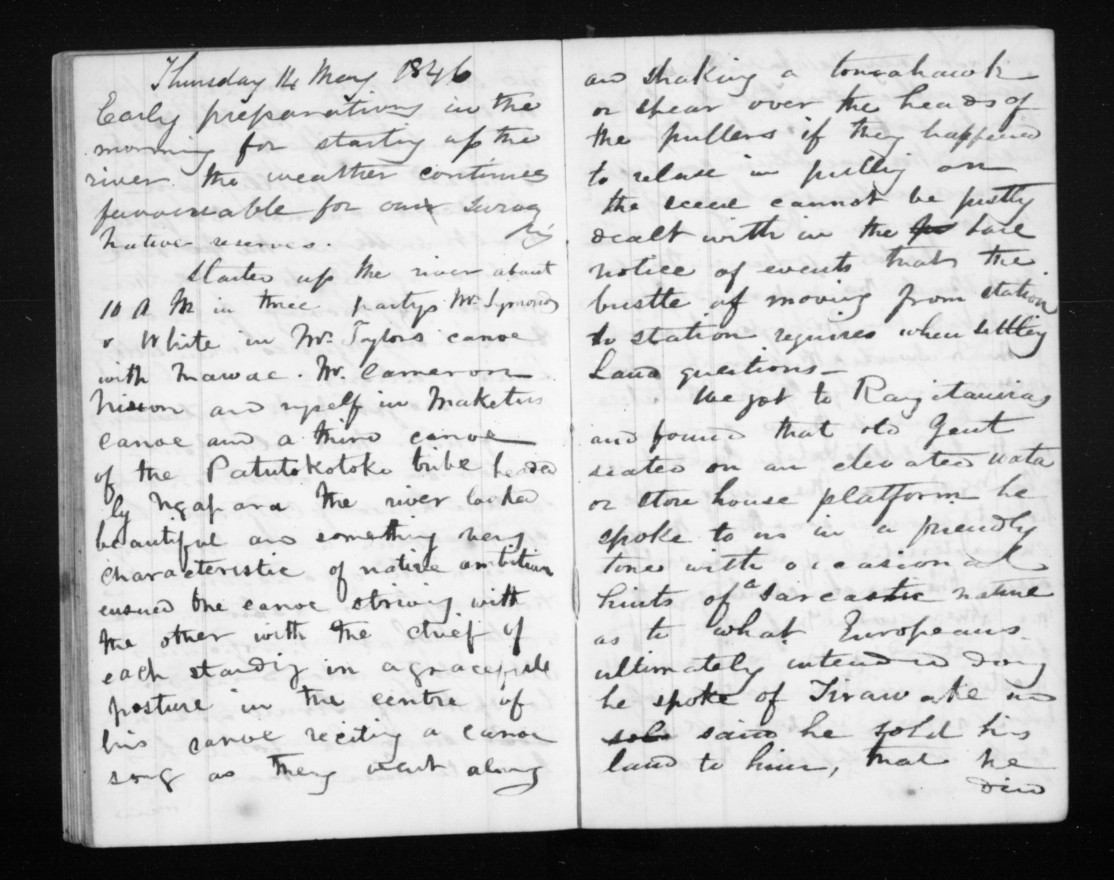 Thursday 14 May 1846
Early preparations in the
morning for starting up the
river. the weather continues
favourable for our survey
Native reserves.
Started up the river about
10 A M in three partys Mr. Symonds
& White in Mr. Taylors canoe
with Mawae. Mr. Cameron
Nixon and myself in Maketus
canoe and a third canoe
of the Patutokotoko tribe headed
by Ngapara the river looked
beautiful and something very
characteristic of native ambition
ensued one canoe striving with
the other with the chief of
each standing in a gracefull
posture in the centre of
his canoe reciting a canoe
song as they went along
and shaking a tomahawk
or spear over the heads of
the pullers if they happened
to relase in pulling on
the scene cannot be justly
dealt with in the bare
notice of events that the
bustle of moving from station
to station requires when settling
Land questions _
We got to Rangitauiras
and found that old Gent
seated on an elevated wata
or store house platform he
spoke to us in a friendly
tone with occasional
hints of a sarcastic nature
as to what Europeans
ultimately intended doing
he spoke of Tirawake and
said he sold his
land to him, that he
did